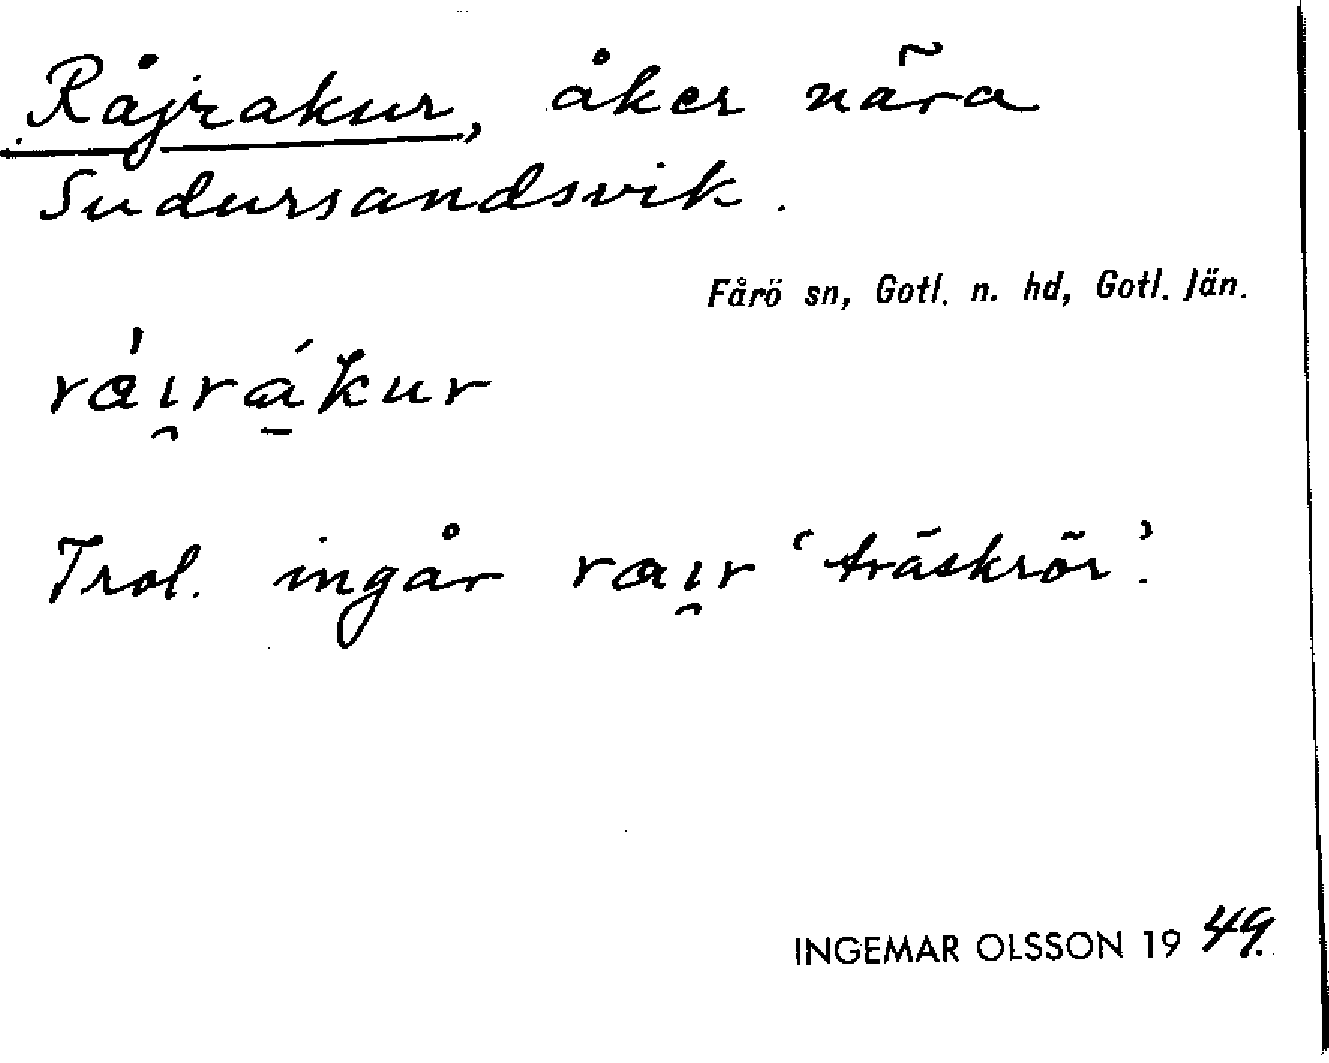 Råjrakur, åker nära
Sudursandsvik.
Fårö sn, Gotl. n. hd, Gotl. län.
rá̍ı̯rá̱kur
Trol. ingår raı̯r ‘träskrör’.
INGEMAR OLSSON 1949.